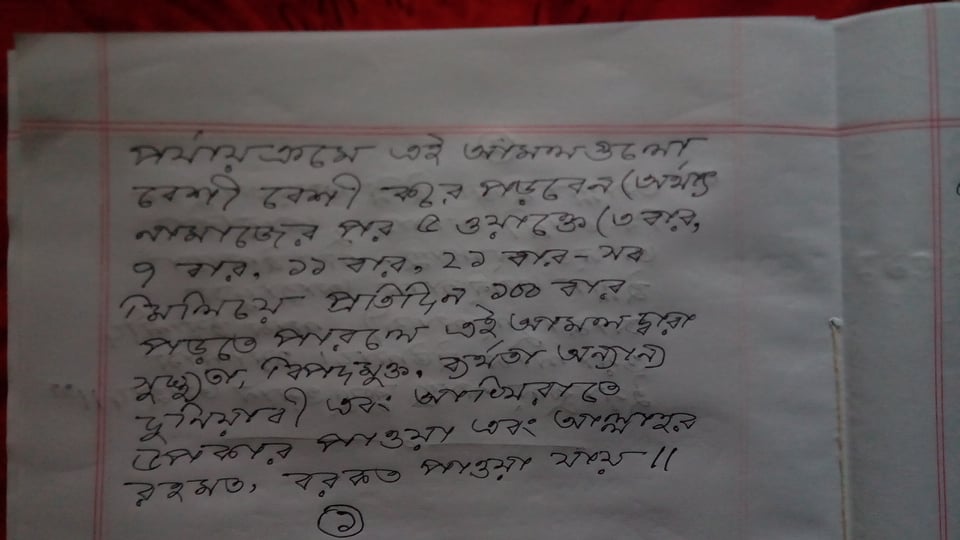 পর্যায়ক্রমে এই আমলগুলো
বেশী বেশী করে পড়বেন (অর্থাৎ
নামাজের পর ৫ ওয়াক্তে (৩ বার,
৭ বার, ১১ বার, ২১ বার - সব
মিলিয়ে প্রতিদিন ১০০ বার
পড়তে পারলে এই আমল দ্বারা
সুস্থ্যতা, বিপদমুক্ত, ব্যর্থতা অন্যান্যে
দুনিয়াবী এবং আখিরাতে
উপকার পাওয়া এবং আল্লাহর
রহমত, বরকত পাওয়া যায় ॥
১